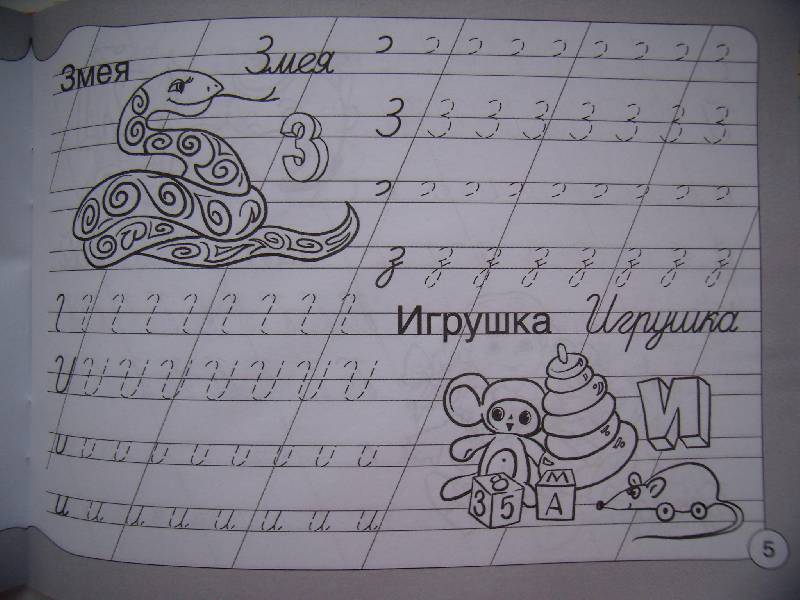 Змея Змея
З
З З З З З З З З
з з з з з з з з
Игрушка Игрушка
И И И И И И И И
И
и и и и и и и и
З 8 5 М А
5